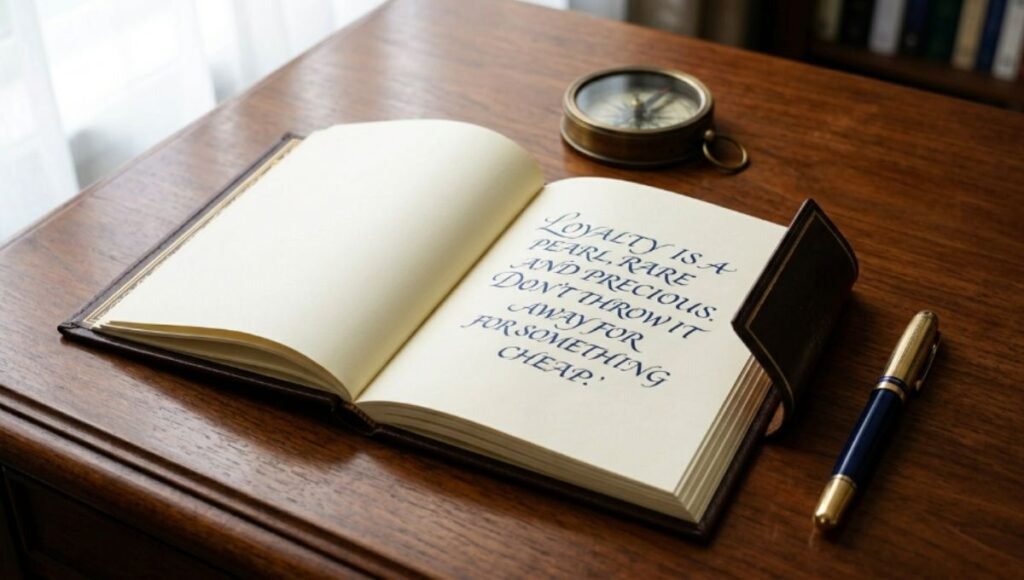 LOYALTY IS A
PEARL, RARE
AND PRECIOUS.
DON'T THROW IT
AWAY FOR
FOR SOMETHING
CHEAP.'